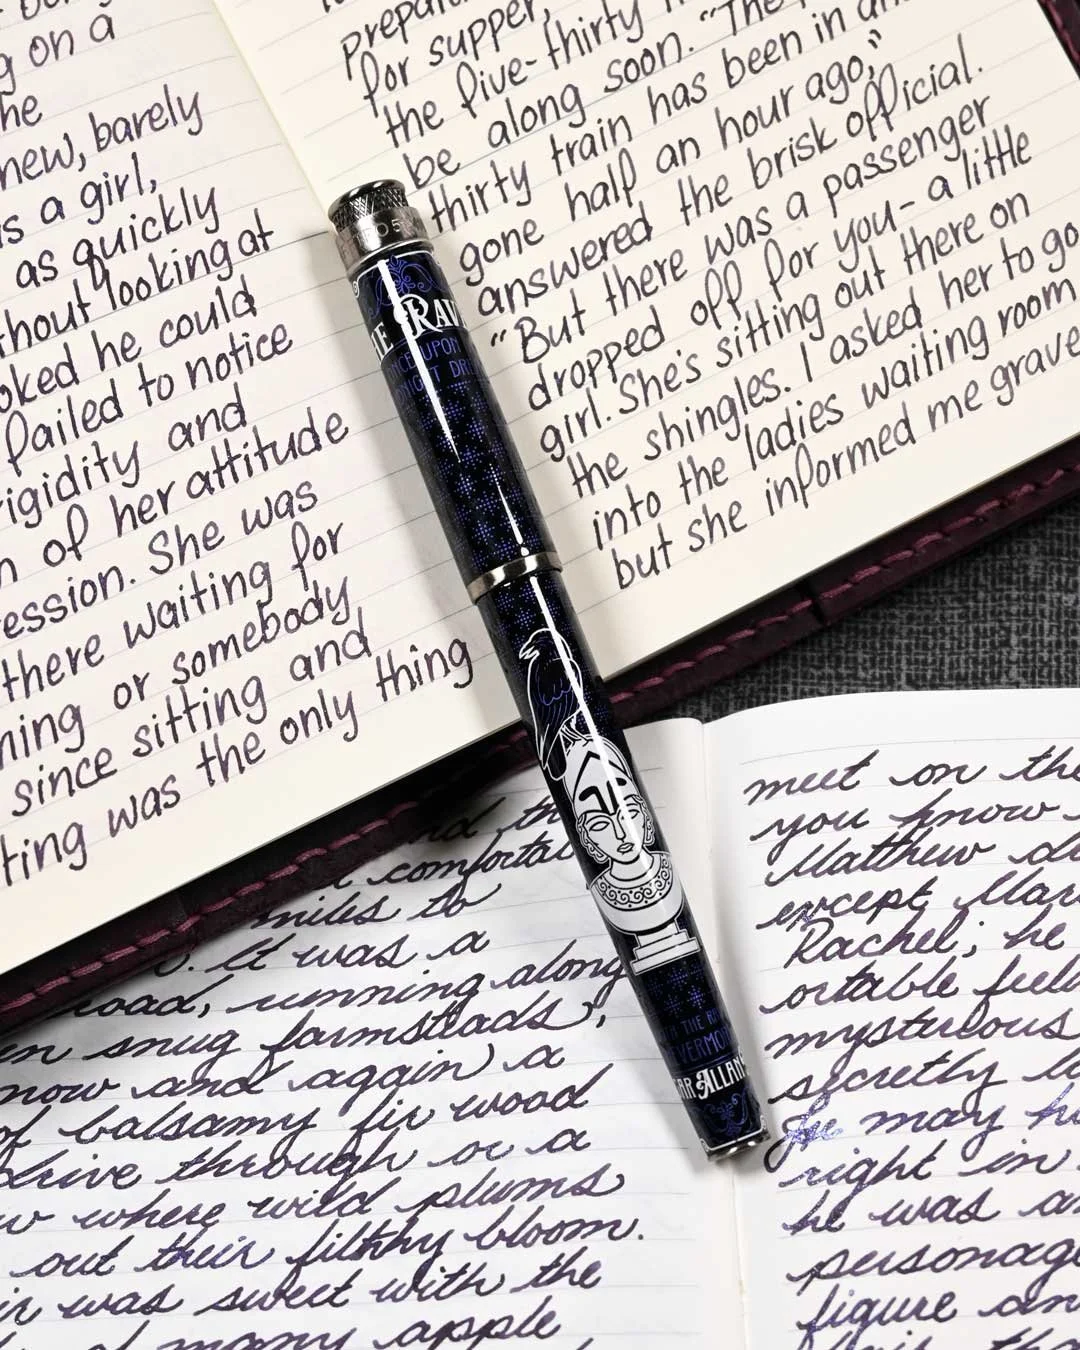 g on a
he
new, barely
is a girl,
as quickly
thout looking at
oked he could
failed to notice
rigidity and
n of her attitude
ession. She was
there waiting for
ning or somebody
since sitting and
ting was the only thing
for supper,
the five-thirty
be along soon. "The
thirty train has been in an
gone half an hour ago,"
answered the brisk official.
"But there was a passenger
dropped off for you- a little
girl. She's sitting out there on
the shingles. I asked her to go
into the ladies waiting room
but she informed me grave
HE RAV
NCE UPON
NIGHT DRE
THE RA
EVERMOR
AR ALLAN
d th
comfortab
miles to
. It was a
road, running along
en snug farmsteads,
now and again a
of balsamy fir wood
drive through or a
w where wild plums
out their filthhy bloom.
ir was sweet with the
of many apple
meet on the
you know
Matthew di
except Mar
Rachel; he
ortable feel
mysterious
secretly la
He may h
right in
he was an
personage
figure an